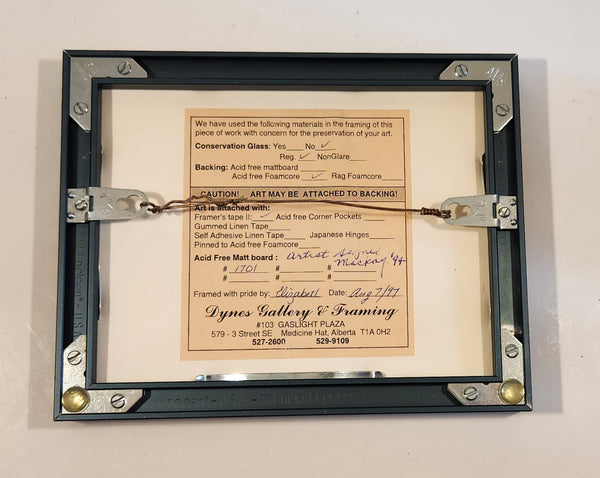 We have used the following materials in the framing of this
piece of work with concern for the preservation of your art.
Conservation Glass: Yes___ No ✓
Reg. ✓ NonGlare___
Backing: Acid free mattboard___
Acid free Foamcore ✓ Rag Foamcore___
CAUTION! ART MAY BE ATTACHED TO BACKING!
Art is attached with:
Framer's tape II: ✓ Acid free Corner Pockets___
Gummed Linen Tape___
Self Adhesive Linen Tape___ Japanese Hinges___
Pinned to Acid free Foamcore___
Acid Free Matt board : artist signed
# 1701 #___ #___ Mackay '94
#___ #___ #___
Framed with pride by: Elizabeth Date: Aug 7/97
Dynes Gallery & Framing
#103 GASLIGHT PLAZA
579 - 3 Street SE Medicine Hat, Alberta T1A 0H2
527-2600 529-9109